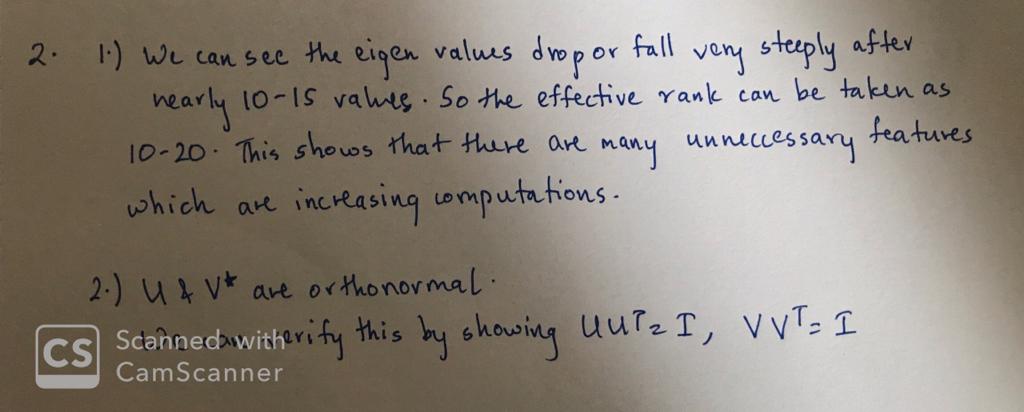 2. 1.) We can see the eigen values drop or fall very steeply after
nearly 10-15 values. So the effective rank can be taken as
10-20. This shows that there are many unneccessary features
which are increasing computations.
2.) U & V* are orthonormal.
verify this by showing UUᵀ = I, VVᵀ = I
CS Scanned with
CamScanner